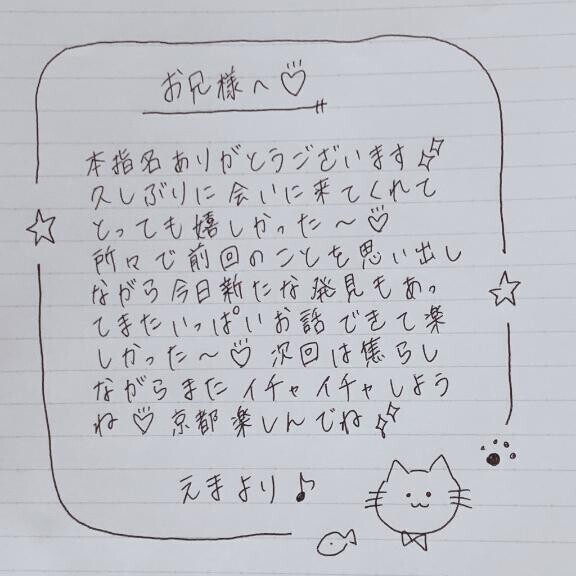 お兄様へ♡
本指名ありがとうございます
久しぶりに会いに来てくれて
とっても嬉しかった〜♡
所々で前回のことを思い出し
ながら今日新たな発見もあっ
てまたいっぱいお話できて楽
しかった〜♡ 次回は焦らし
ながらまたイチャイチャしよう
ね♡ 京都楽しんでね
えまより♪